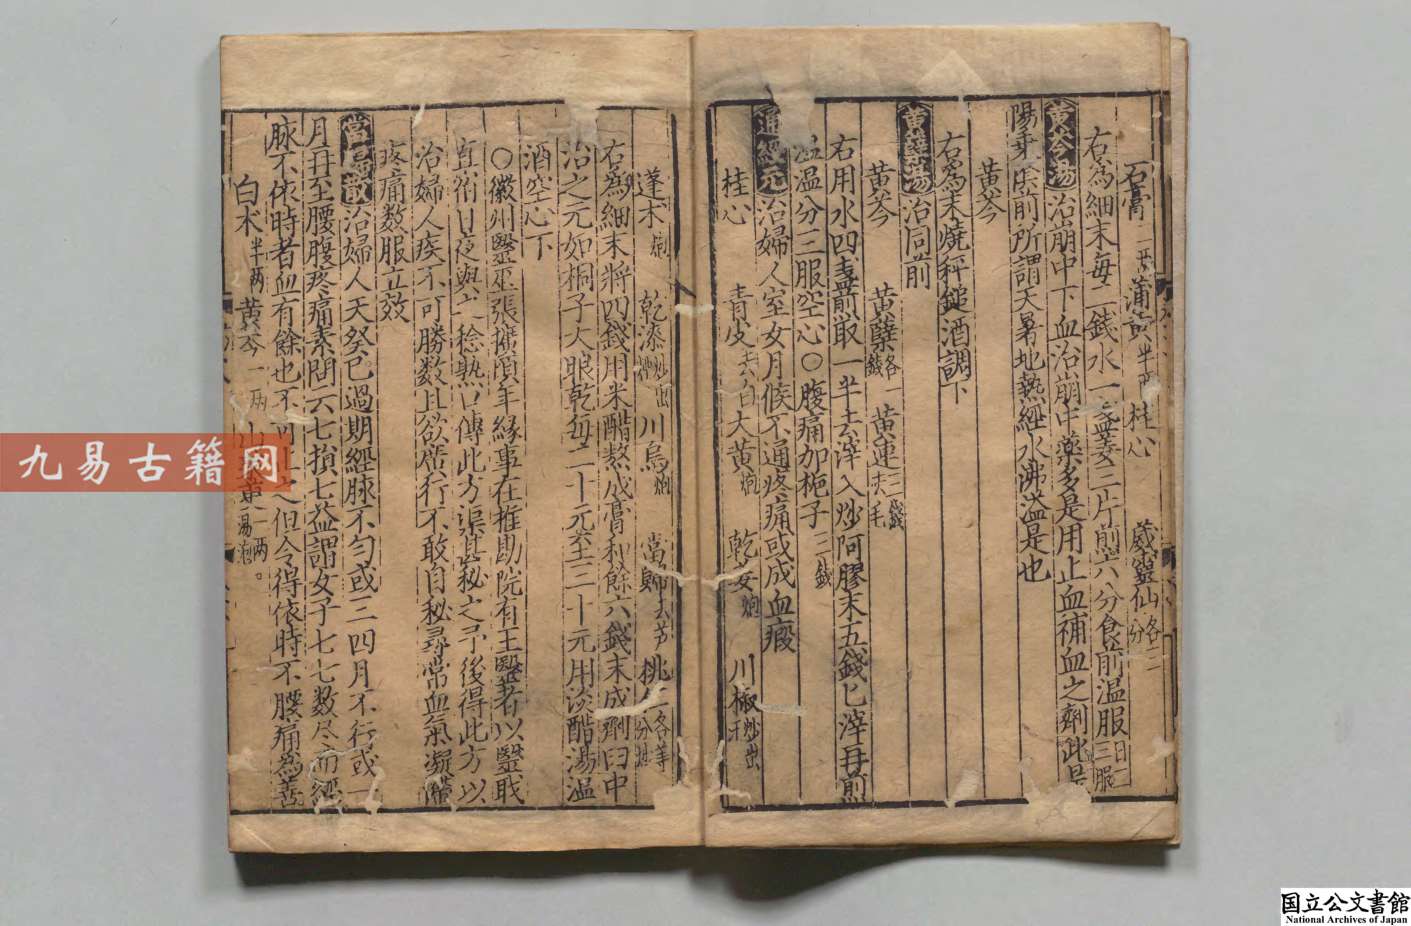 石膏 蒲黃半两 桂心 威靈仙各二分
右為細末每二錢水一盞姜三片煎六分食前温服日二三服
黃芩湯治崩中下血治崩中藥多是用止血補血之劑此是
陽乗陰前所謂天暑地熱經水沸溢是也
黃芩
右為末燒秤鎚酒調下
黃蘗湯治同前
黃芩 黃蘗各錢 黃連去毛二錢
右用水四盞煎取一半去滓入炒阿膠末五錢匕滓再煎
温分三服空心○腹痛加梔子二錢
通經元治婦人室女月候不通疼痛或成血瘕
桂心 青皮去白 大黃炮 乾姜炮 川椒炒出
蓬术炮 乾漆炒出 川烏炮 當歸去芦 桃各等分
右為細末將四錢用米醋熬成膏和餘六錢末成劑臼中
治之元如桐子大眼乾每二十元至三十元用淡醋湯温
酒空心下
○徽州醫巫張擴頃年緣事在推勘院有王醫者以醫職
直宿日夜與之稔熟口傳此方渠甚秘之予後得此方以
治婦人疾不可勝數且欲廣行不敢自秘尋常血氣凝滯
疼痛数服立效
當歸散治婦人天癸已過期經脉不勻或三四月不行或一
月再至腰腹疼痛素問云七損七益謂女子七七数尽而經
脉不依時者血有餘也不可之但令得依時不腰痛為善
白术半两 黃芩一两 一两湯泡
九易古籍网
国立公文書館
National Archives of Japan